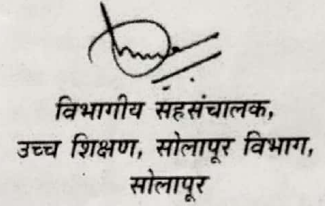 विभागीय सहसंचालक,
उच्च शिक्षण, सोलापूर विभाग,
सोलापूर